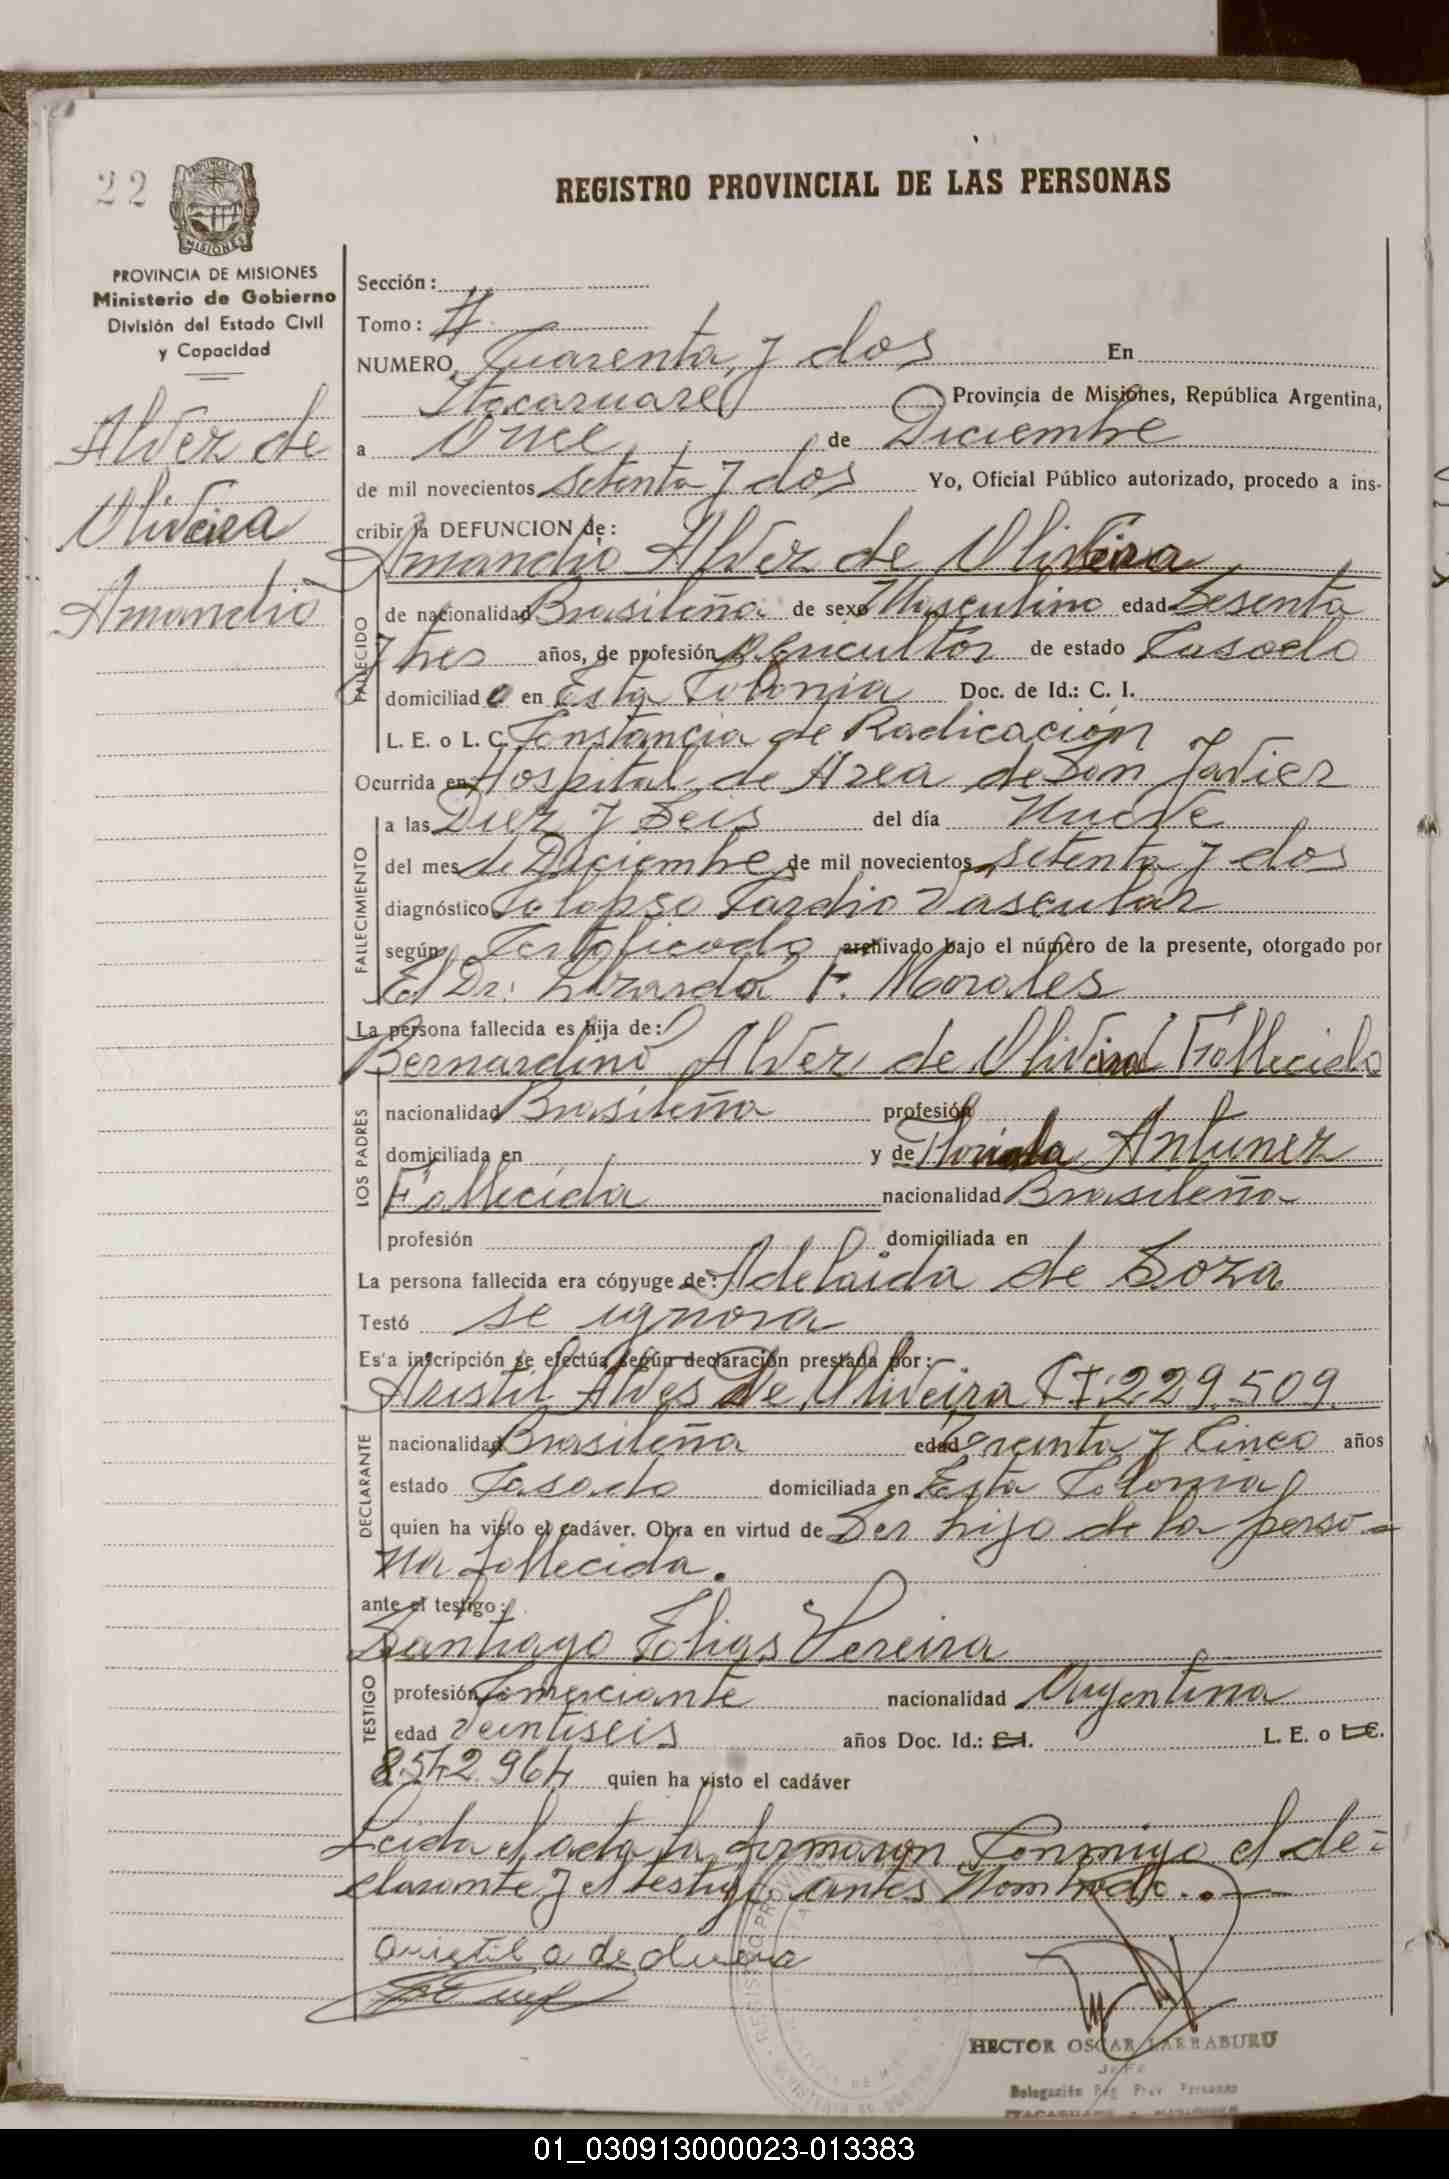 22
REGISTRO PROVINCIAL DE LAS PERSONAS
PROVINCIA DE MISIONES
Ministerio de Gobierno
División del Estado Civil
y Capacidad
Alvez de
Oliveira
Amandio
Sección:
Tomo: #
NUMERO Cuarenta y dos En
Itacaruare Provincia de Misiones, República Argentina,
a Once de Diciembre
de mil novecientos setenta y dos Yo, Oficial Público autorizado, procedo a ins-
cribir la DEFUNCION de:
Amandio Alvez de Oliveira
FALLECIDO
de nacionalidad Brasileña de sexo Masculino edad Sesenta
y tres años, de profesión Agricultor de estado Casado
domiciliado en Esta Colonia Doc. de Id.: C. I.
L. E. o L. C. Constancia de Radicación
Ocurrida en Hospital de Area de San Javier
FALLECIMIENTO
a las Diez y Seis del día Nueve
del mes de Diciembre de mil novecientos setenta y dos
diagnóstico Colapso Cardio Vascular
según Certificado archivado bajo el número de la presente, otorgado por
El Dr: Lizardo F. Morales
La persona fallecida es hija de:
Bernardino Alvez de Oliveira Fallecido
LOS PADRES
nacionalidad Brasileña profesión
domiciliada en y de Antunez
Fallecida nacionalidad Brasileña
profesión domiciliada en
La persona fallecida era cónyuge de: Adelaida de Soza
Testó se ignora
Esta inscripción se efectúa según declaración prestada por:
Aristil Alves De Oliveira CI: 229.509.
DECLARANTE
nacionalidad Brasileña edad Treinta y Cinco años
estado Casado domiciliada en Esta Colonia
quien ha visto el cadáver. Obra en virtud de Ser hijo de la perso=
na fallecida.
ante el testigo:
Santiago Elias Pereira
TESTIGO
profesión Comerciante nacionalidad Argentina
edad Veintiseis años Doc. Id.: C.I. L. E. o L.C.
8.542.964 quien ha visto el cadáver
Leida el acta la firmaron Conmigo el de=
clarante y el testigo antes Nombrado..—
Aristil a de oliveira
HECTOR OSCAR LARRABURU
Jefe
Delegación Reg. Prov. Personas
01_030913000023-013383